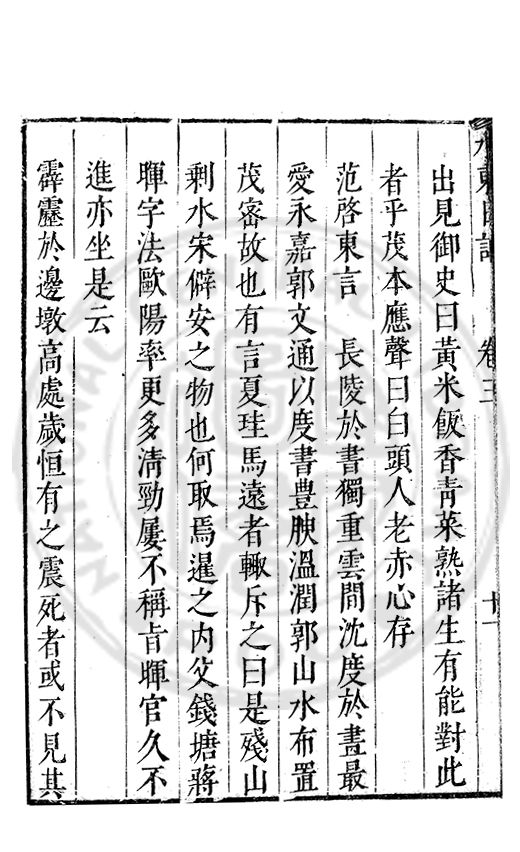 水東日記　卷三　十一
出見御史曰黃米飯香青菜熟諸生有能對此
者乎茂本應聲曰白頭人老赤心存
范啓東言　長陵於書獨重雲間沈度於畫最
愛永嘉郭文通以度書豊腴溫潤郭山水布置
茂密故也有言夏珪馬遠者輙斥之曰是殘山
剩水宋僻安之物也何取焉暹之内父錢塘蔣
暉字法歐陽率更多清勁屢不稱㫖暉官久不
進亦坐是云
霹靂於邊墩高處歲恒有之震死者或不見其